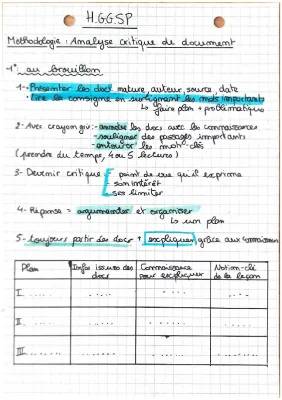 H.G.G.S.P
Méthodologie : Analyse critique de document
-1° au brouillon
1- Présenter les doc nature, auteur, source, date
• Lire la consigne en surlignant les mots importants
↳ faire plan + problématique
2- Avec crayon gris : - annoter les docs avec les connaissances
- souligner des passages importants
- entourer les mots-clés
(prendre du temps, 4 ou 5 lectures)
3- Devenir critique : point de vue qu'il exprime
son intérêt
ses limites
4- Réponse = argumenter et organiser
↳ un plan
5- toujours partir des docs + expliquer grâce aux connaissances
Plan | Info issues des docs | Connaissance pour expliquer | Notion-clé de la leçon
I. .... | ..... | ..... | .....
II .... | ..... | ..... | .....
III .... | ..... | ..... | .....